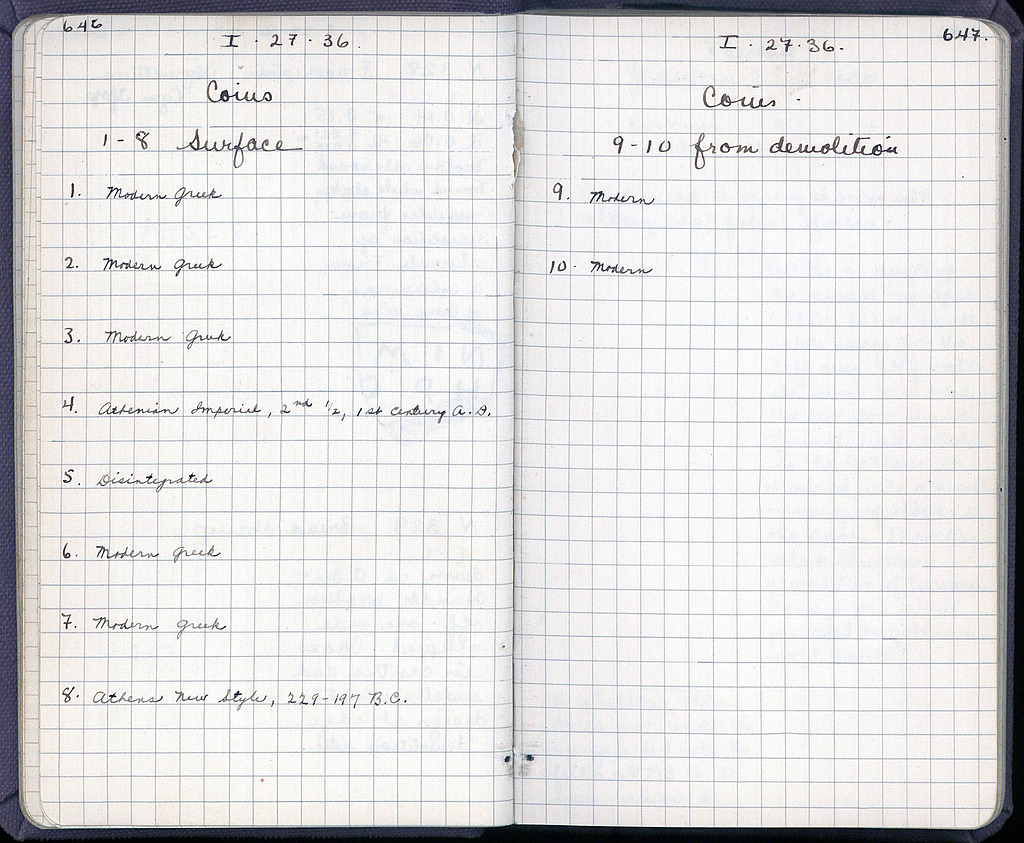 646
I · 27 · 36.
Coins
1-8 Surface
1. Modern Greek
2. Modern Greek
3. Modern Greek
4. Athenian Imperial, 2nd 1/2, 1st century A.D.
5. Disintegrated
6. Modern Greek
7. Modern Greek
8. Athens New Style, 229-197 B.C.
647.
I · 27·36.
Coins ·
9-10 from demolition
9. Modern
10. Modern